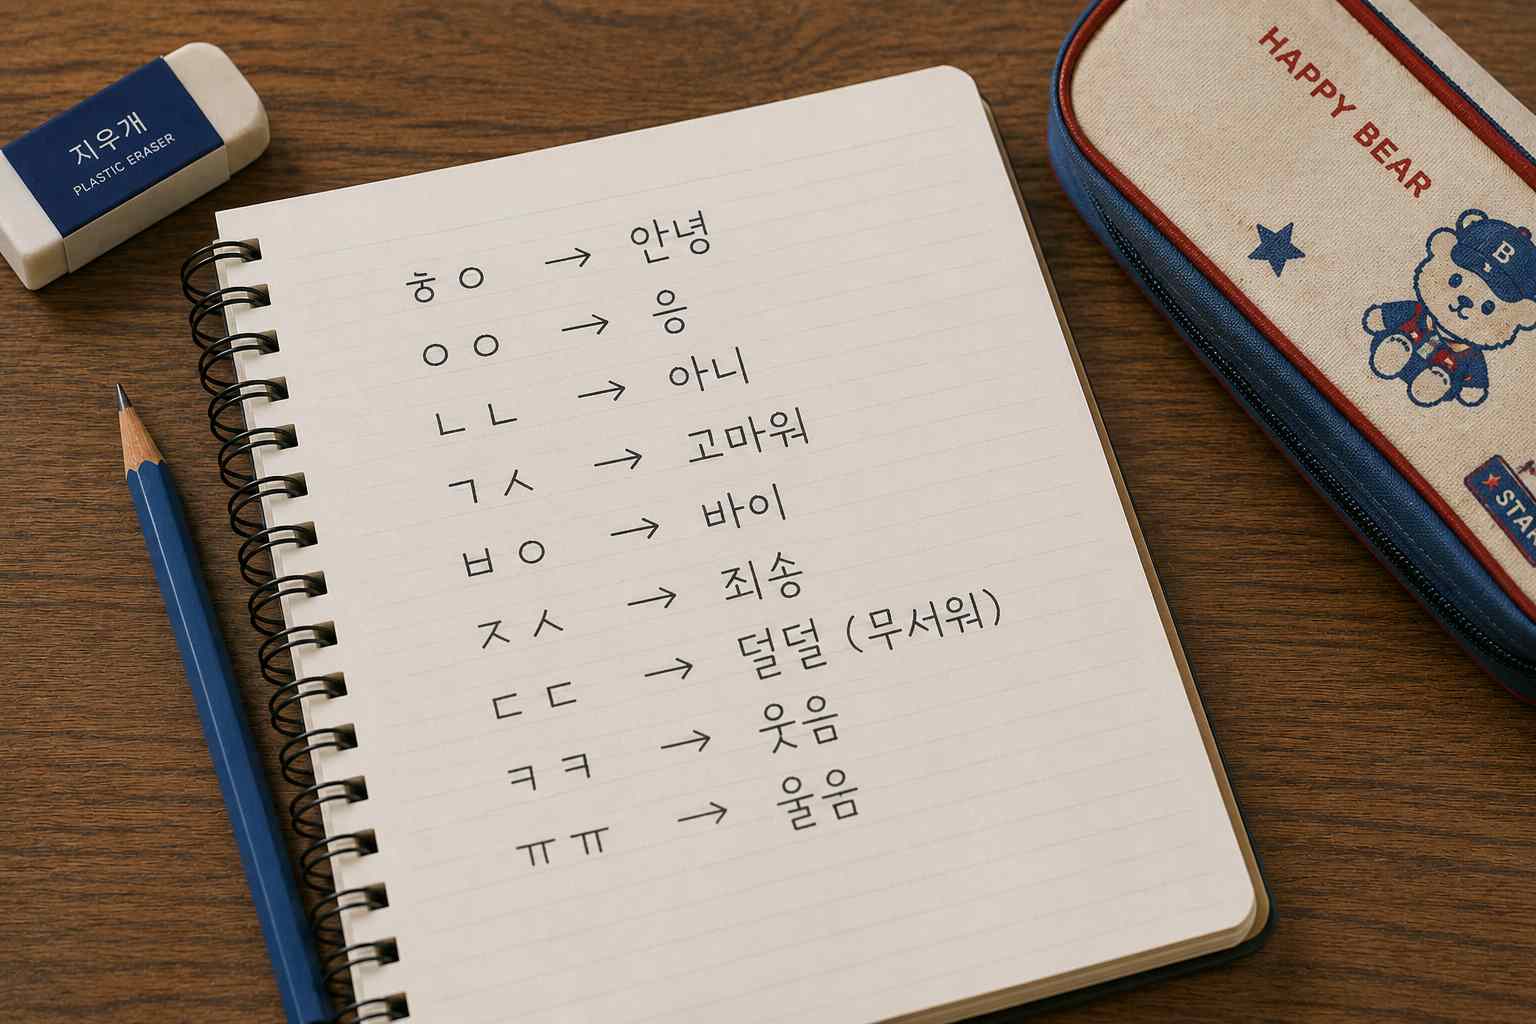 지우개
PLASTIC ERASER
HAPPY BEAR
B
STAR
ㅎㅇ → 안녕
ㅇㅇ → 응
ㄴㄴ → 아니
ㄱㅅ → 고마워
ㅂㅇ → 바이
ㅈㅅ → 죄송
ㄷㄷ → 덜덜 (무서워)
ㅋㅋ → 웃음
ㅠㅠ → 울음